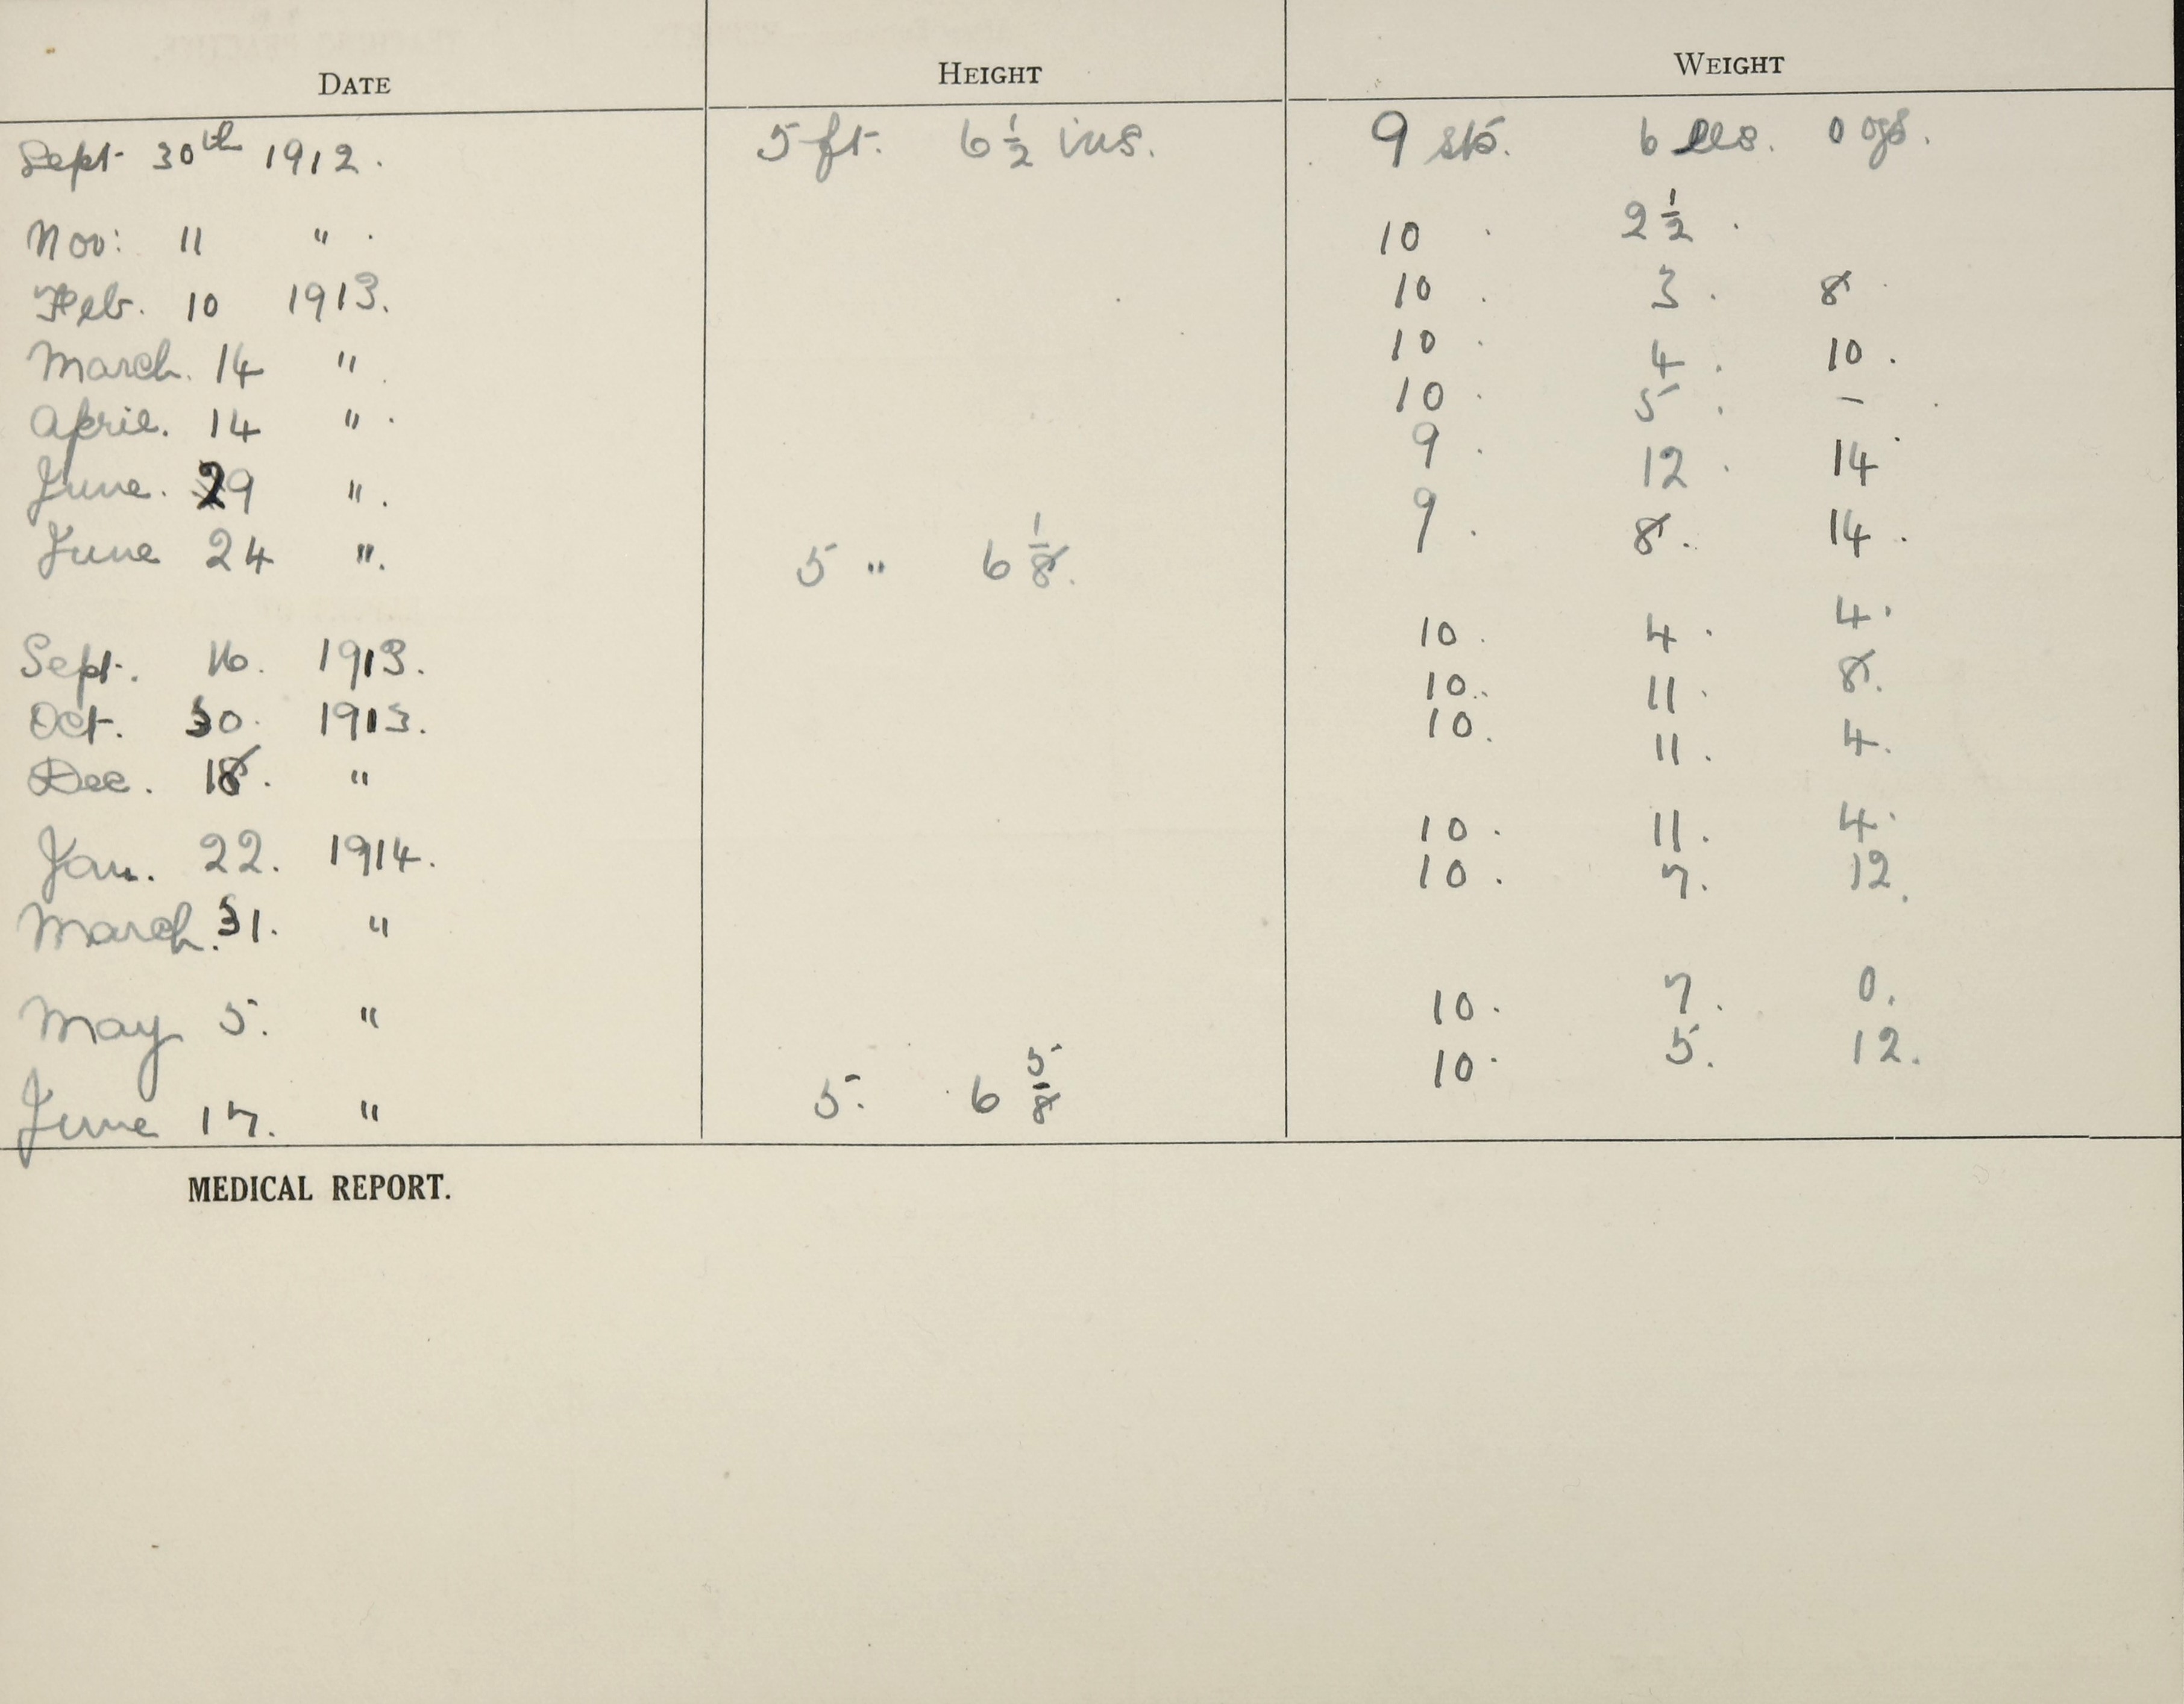 DATE HEIGHT WEIGHT
Sept 30th 1912. 5 ft. 6 1/2 ins. 9 sts. 6 lbs. 0 ozs.
Nov: 11 " . 10 . 2 1/2 .
Feb. 10 1913. 10 . 3 . 8 .
March. 14 " . 10 . 4 . 10 .
April. 14 " . 10 . 5 . –
June. 29 " . 9 . 12 . 14
June 24 ". 5 " 6 1/8. 9 . 8 . 14 .
Sept. 16. 1913. 10 . 4 . 4 .
Oct. 30. 1913. 10. 11 . 8.
Dec. 18. " 10. 11 . 4.
Jan. 22. 1914. 10 . 11 . 4.
March. 31. " 10 . 7. 12.
May 5. " 10. 7 . 0.
June 17. " 5. 6 5/8 10. 5. 12.
MEDICAL REPORT.